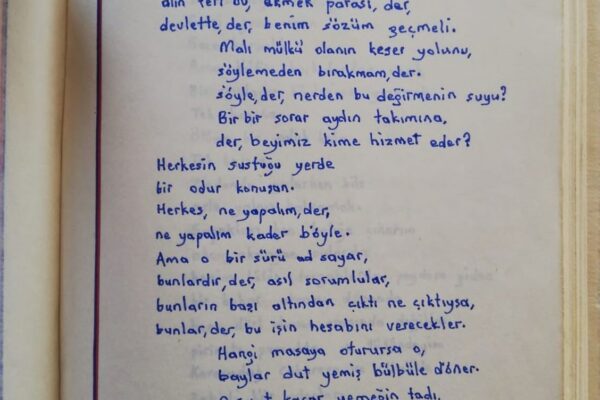 alın teri bu, ekmek parası, der,
devlette, der, benim sözüm geçmeli.
Malı mülkü olanın keser yolunu,
söylemeden bırakmam, der.
söyle, der, nerden bu değirmenin suyu?
Bir bir sorar aydın takımına,
der, beyimiz kime hizmet eder?
Herkesin sustuğu yerde
bir odur konuşan.
Herkes, ne yapalım, der,
ne yapalım kader böyle.
Ama o bir sürü ad sayar,
bunlardır, der, asıl sorumlular,
bunların başı altından çıktı ne çıktıysa,
bunlar, der, bu işin hesabını verecekler.
Hangi masaya oturursa o,
baylar dut yemiş bülbüle döner.
kaçar yemeğin tadı.